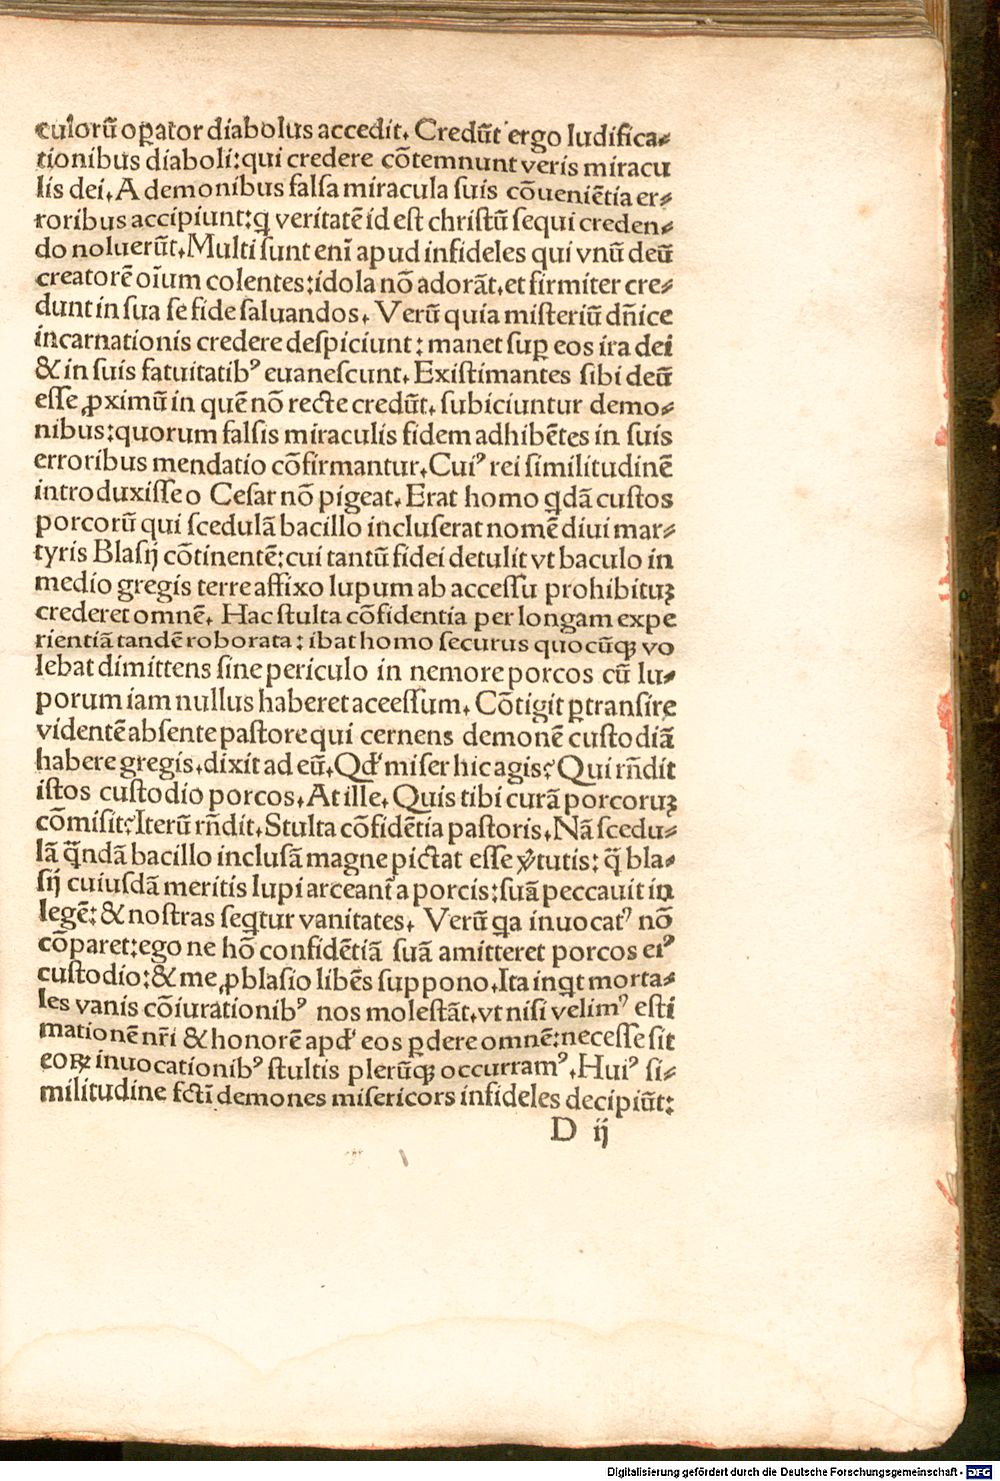 culorũ oꝑator diabolus accedit. Credũt ergo ludifica-
tionibus diaboli:qui credere cõtemnunt veris miracu
lis dei. A demonibus falſa miracula ſuis cõueniẽtia er-
roribus accipiunt:ꝗ veritatẽ id eſt chriſtũ ſequi creden-
do noluerũt. Multi ſunt enĩ apud infideles qui vnũ deũ
creatorẽ oĩum colentes:idola nõ adorãt.et firmiter cre-
dunt in sua ſe fide ſaluandos. Verũ quia miſteriũ dñice
incarnationis credere deſpiciunt: manet ſuꝑ eos ira dei
& in ſuis fatuitatibꝰ euaneſcunt. Exiſtimantes ſibi deũ
eſſe ꝓximũ in quẽ nõ recte credũt. ſubiciuntur demo-
nibus:quorum falſis miraculis fidem adhibẽtes in ſuis
erroribus mendatio cõfirmantur. Cuiꝰ rei ſimilitudinẽ
introduxiſſe o Ceſar nõ pigeat. Erat homo ꝗdã cuſtos
porcorũ qui ſcedulã bacillo incluſerat nomẽ diui mar-
tyris Blaſij cõtinentẽ:cui tantũ fidei detulit vt baculo in
medio gregis terre affixo lupum ab acceſſu prohibituꝫ
crederet omnẽ. Hac ſtulta cõfidentia per longam expe
rientiã tandẽ roborata: ibat homo ſecurus quocũqꝫ vo
lebat dimittens ſine periculo in nemore porcos cũ lu-
porum iam nullus haberet aceeſſum. Cõtigit ꝑtranſire
videntẽ abſente paſtore qui cernens demonẽ cuſtodiã
habere gregis.dixit ad eũ. Qd' miſer hic agis? Qui rñdit
iſtos cuſtodio porcos. At ille. Quis tibi curã porcoruꝫ
cõmiſit?Iterũ rñdit. Stulta cõfidẽtia paſtoris. Nã ſcedu-
lã q̃ndã bacillo incluſã magne pictat eſſe v̓tutis: q̃ bla-
ſij cuiuſdã meritis lupi arceant̃ a porcis:ſuã peccauit in
legẽ: & noſtras ſeꝗtur vanitates. Verũ ꝗa inuocatꝰ nõ
cõparet:ego ne hõ confidẽtiã ſuã amitteret porcos eiꝰ
cuſtodio:& me ꝓ blaſio libẽs ſuppono. Ita inꝗt morta-
les vanis cõiurationibꝰ nos moleſtãt.vt niſi velimꝰ eſti
mationẽ nr̃i & honorẽ apd' eos ꝑdere omnẽ:neceſſe ſit
eoꝝ inuocationibꝰ ſtultis plerũqꝫ occurramꝰ. Huiꝰ ſi-
militudine fcti demones miſericors infideles decipiũt:
D ij
Digitalisierung gefördert durch die Deutsche Forschungsgemeinschaft - DFG